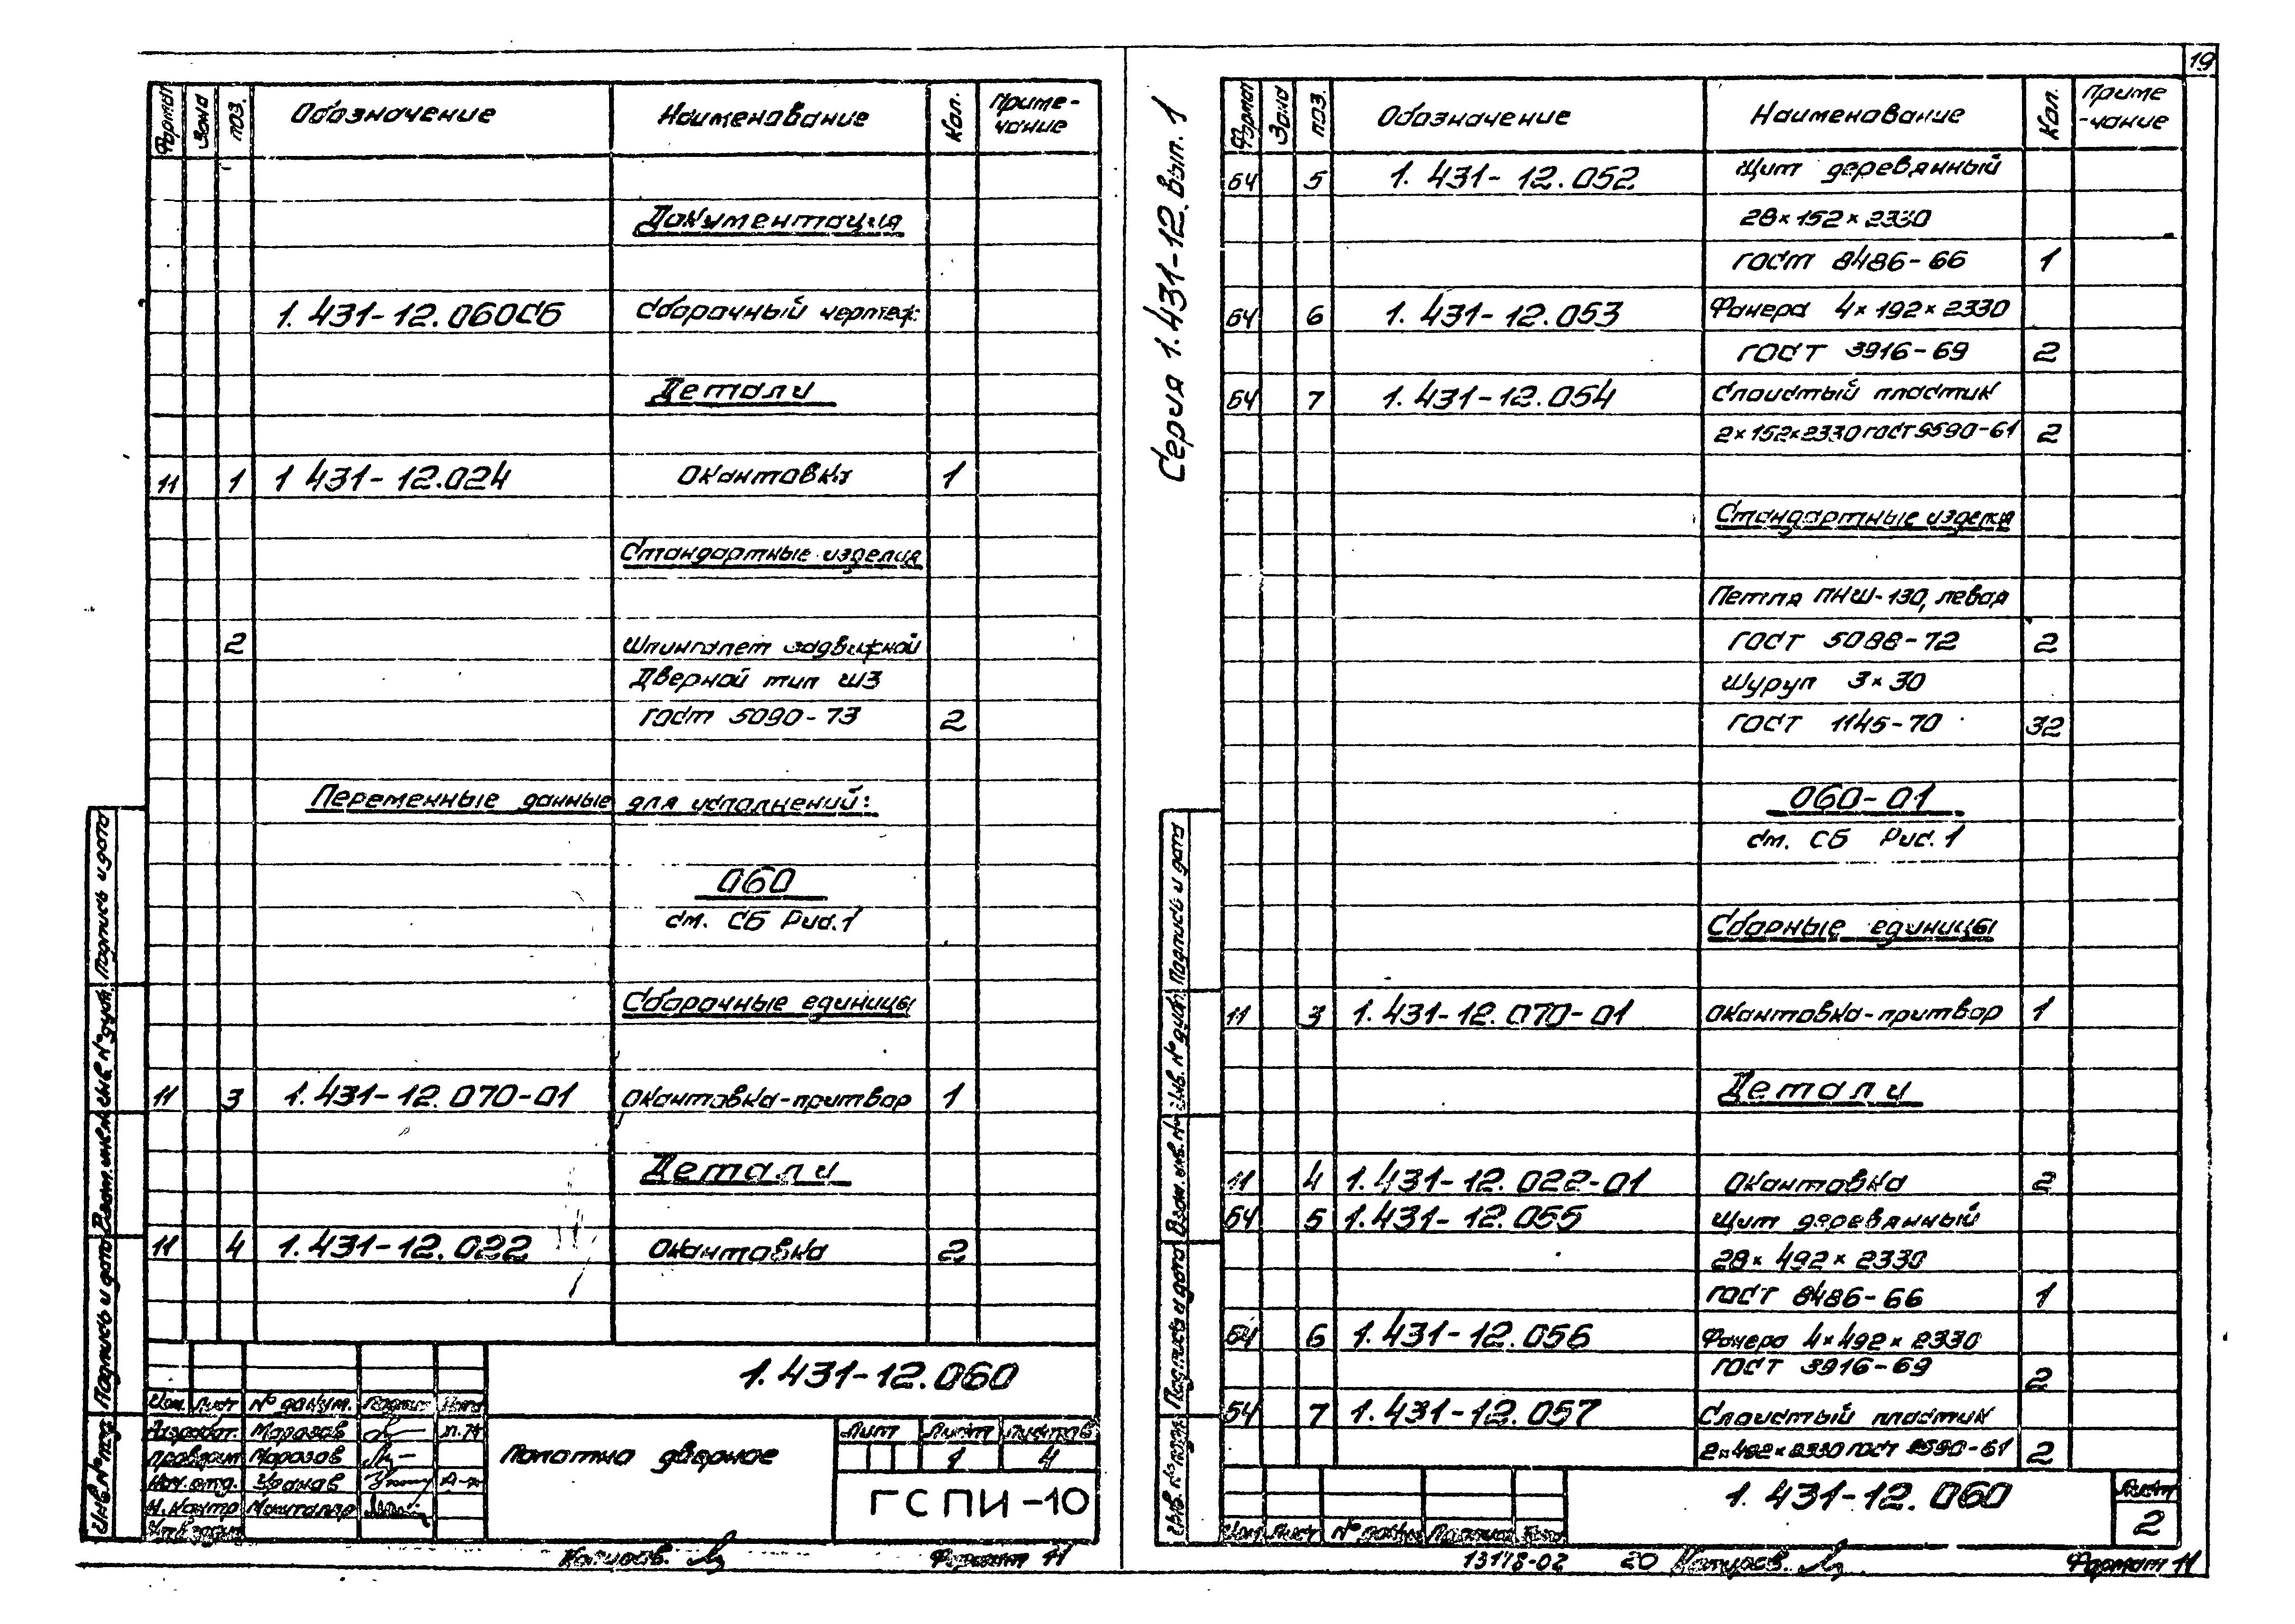 19
Формат Зона поз. Обозначение Наименование Кол. Приме-
чание
Документация
1.431-12.060СБ Сборочный чертеж
Детали
11 1 1 431-12.024 Окантовка 1
Стандартные изделия
2 Шпингалет задвижной
Дверной тип ШЗ
ГОСТ 5090-73 2
Переменные данные для исполнений:
060
см. СБ Рис.1
Сборочные единицы
11 3 1.431-12.070-01 Окантовка-притвор 1
Детали
11 4 1.431-12.022 Окантовка 2
1.431-12.060
Изм. Лист № докум. Подпись Дата
Разработ. Морозов
Проверил Морозов
Нач. отд.
Н. контр
Полотно дверное
Лит Лист Листов
1 4
ГСПИ-10
Копиров. Формат 11
Инв. № подл. Подпись и дата Взам. инв. № Инв. № дубл. Подпись и дата
Серия 1.431-12. Вып. 1
Формат Зона поз. Обозначение Наименование Кол. Приме
-чание
БЧ 5 1.431-12.052 Щит деревянный
28×152×2330
ГОСТ 8486-66 1
БЧ 6 1.431-12.053 Фанера 4×192×2330
ГОСТ 3916-69 2
БЧ 7 1.431-12.054 Слоистый пластик
2×152×2330 ГОСТ 9590-61 2
Стандартные изделия
Петля ПНШ-130, левая
ГОСТ 5088-72 2
Шуруп 3×30
ГОСТ 1145-70 32
060-01
см. СБ Рис. 1
Сборные единицы
11 3 1.431-12.070-01 Окантовка-притвор 1
Детали
11 4 1.431-12.022-01 Окантовка 2
БЧ 5 1.431-12.055 Щит деревянный
28×492×2330
ГОСТ 8486-66 1
БЧ 6 1.431-12.056 Фанера 4×492×2330
ГОСТ 3916-69 2
БЧ 7 1.431-12.057 Слоистый пластик
2×492×2330 ГОСТ 9590-61 2
1.431-12.060
Лист
2
Изм Лист № докум Подпись Дата
13178-02 20 Копиров. Формат 11
Инв. № подл. Подпись и дата Взам. инв. № Инв. № дубл. Подпись и дата